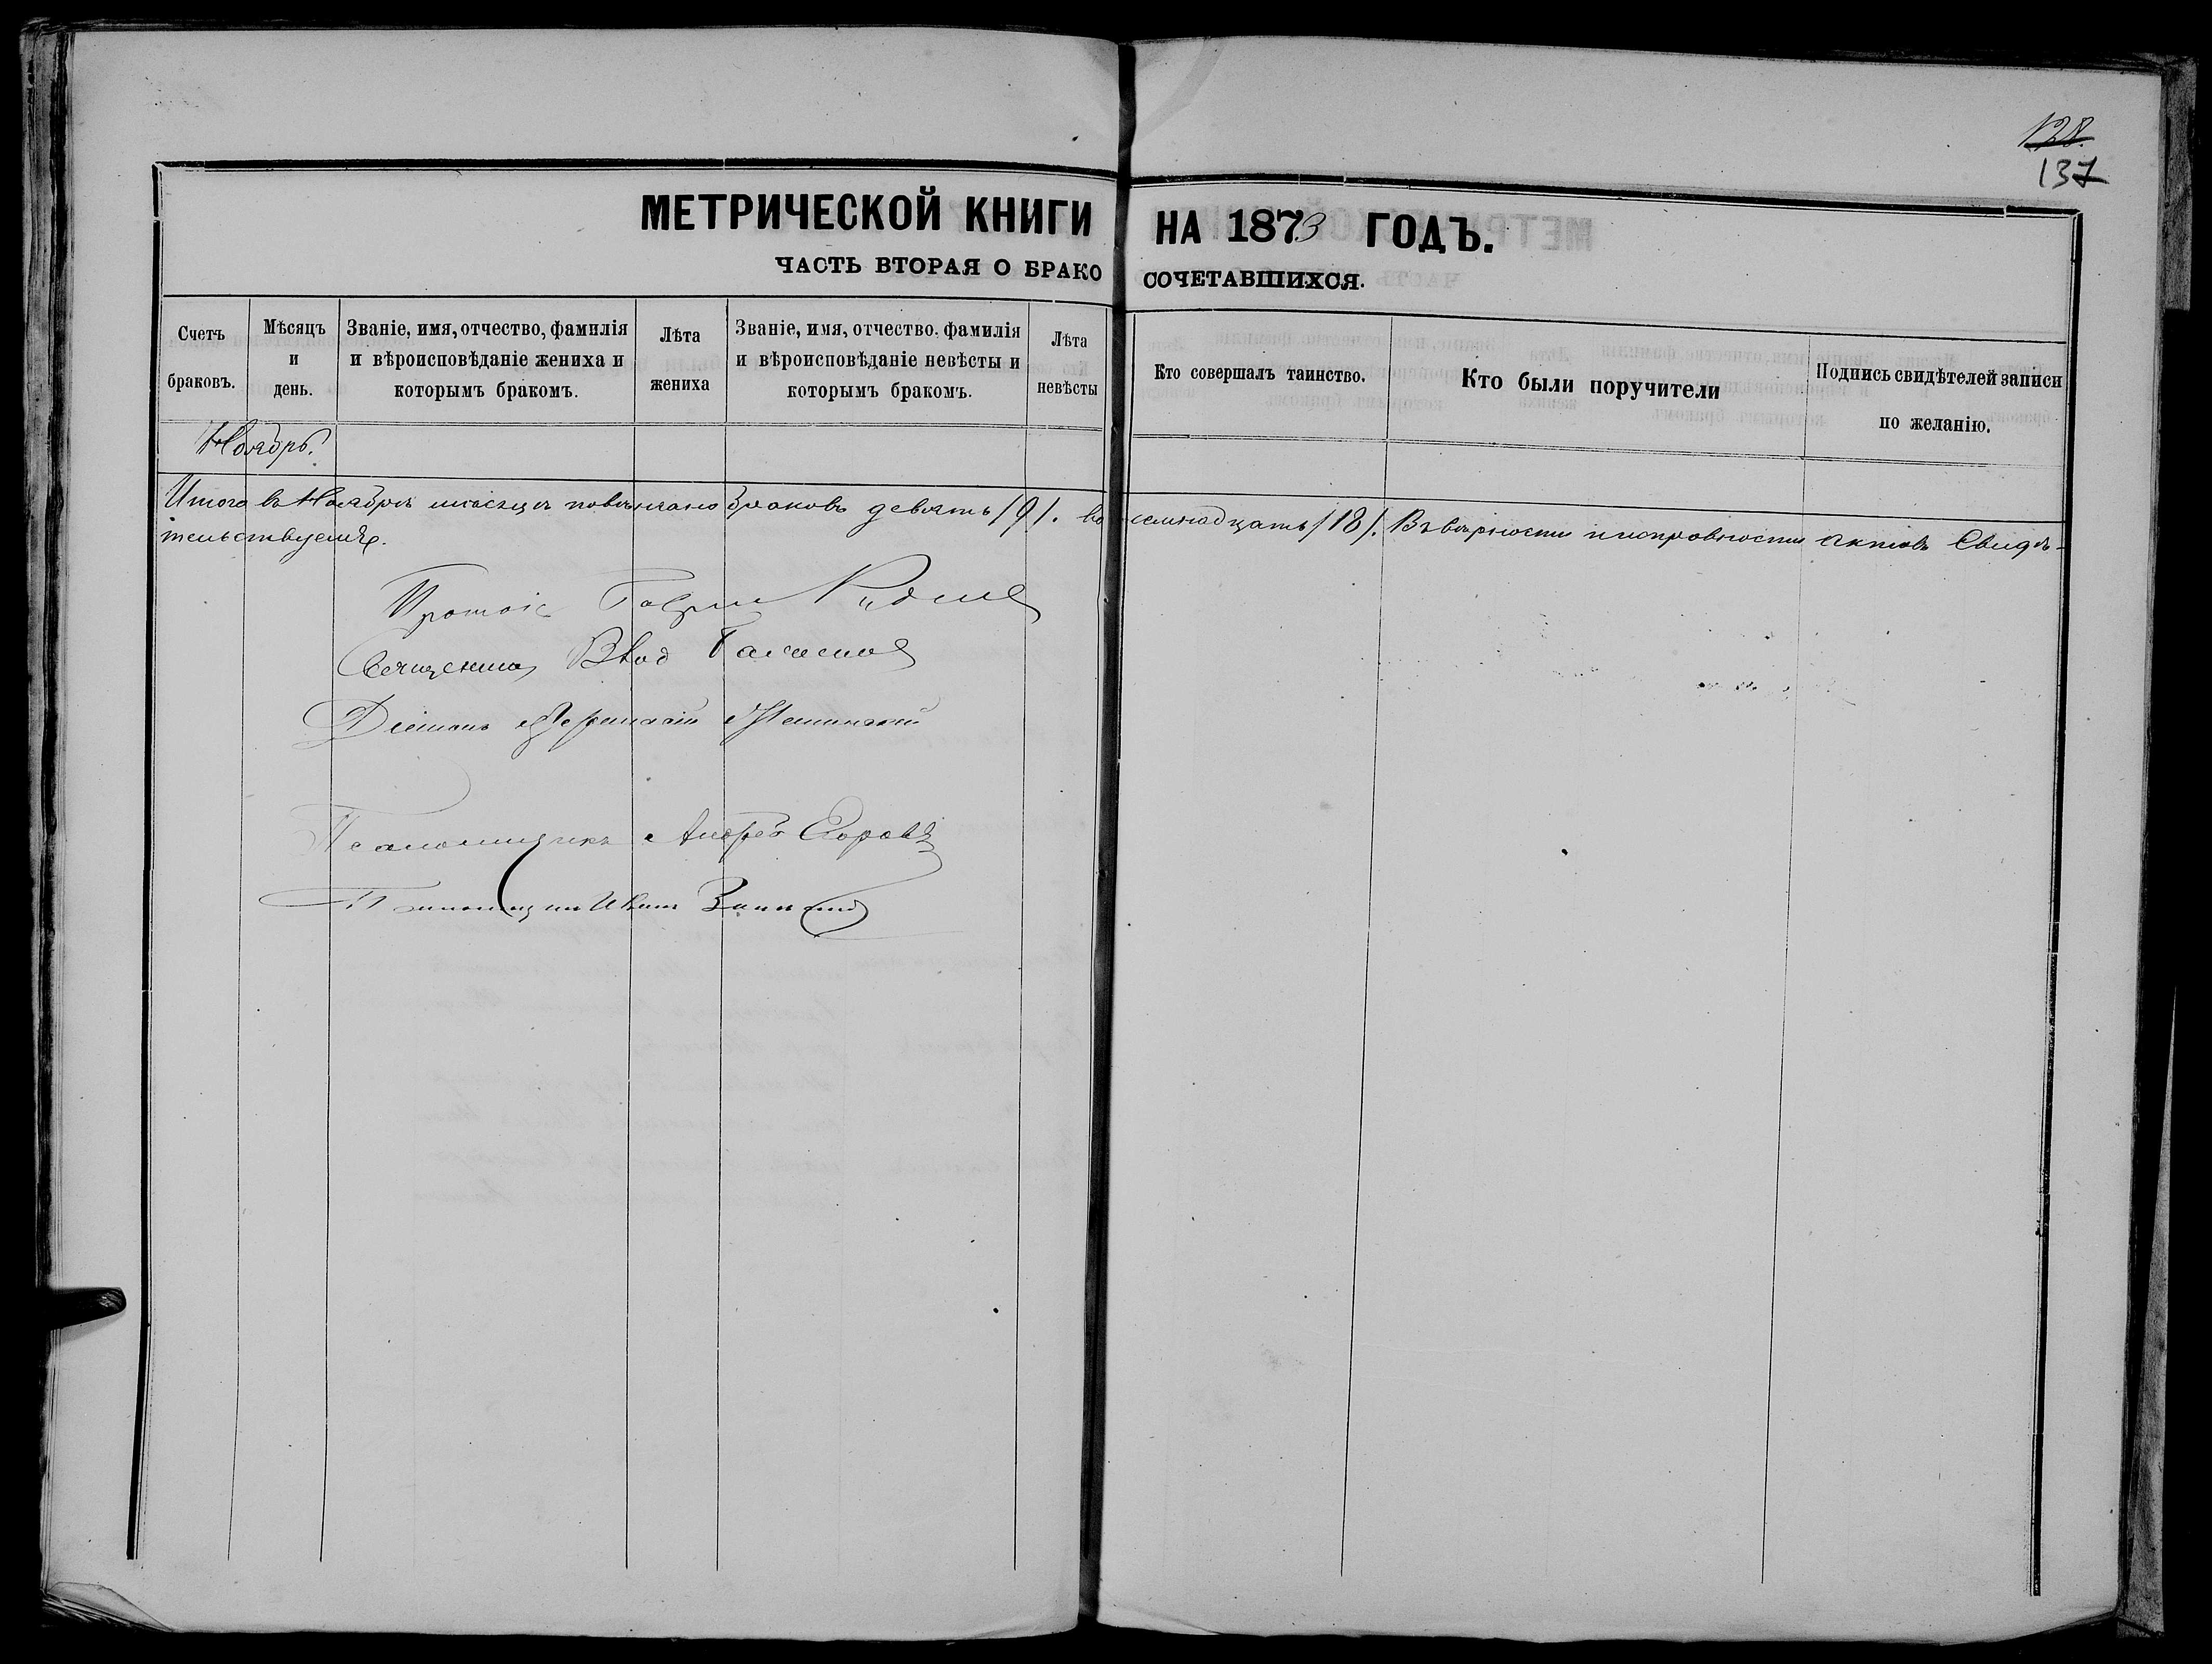 128.
137
МЕТРИЧЕСКОЙ КНИГИ НА 1873 ГОДЪ.
ЧАСТЬ ВТОРАЯ О БРАКОСОЧЕТАВШИХСЯ.
Счетъ браковъ.
Мѣсяцъ и день.
Званіе, имя, отчество, фамилія и вѣроисповѣданіе жениха и которымъ бракомъ.
Лѣта жениха
Званіе, имя, отчество, фамилія и вѣроисповѣданіе невѣсты и которымъ бракомъ.
Лѣта невѣсты
Кто совершалъ таинство.
Кто были поручители
Подпись свидѣтелей записи по желанію.
Ноябрь.
Итого въ Ноябрѣ мѣсяцѣ повѣнчано браковъ девять /9/. восемнадцать /18/. Въ вѣрности и исправности актовъ Свидѣ-
тельствуемъ.
Протоіе
Священник
Діаконъ
Псаломщикъ Андрей Егоровъ
Псаломщикъ Иванъ